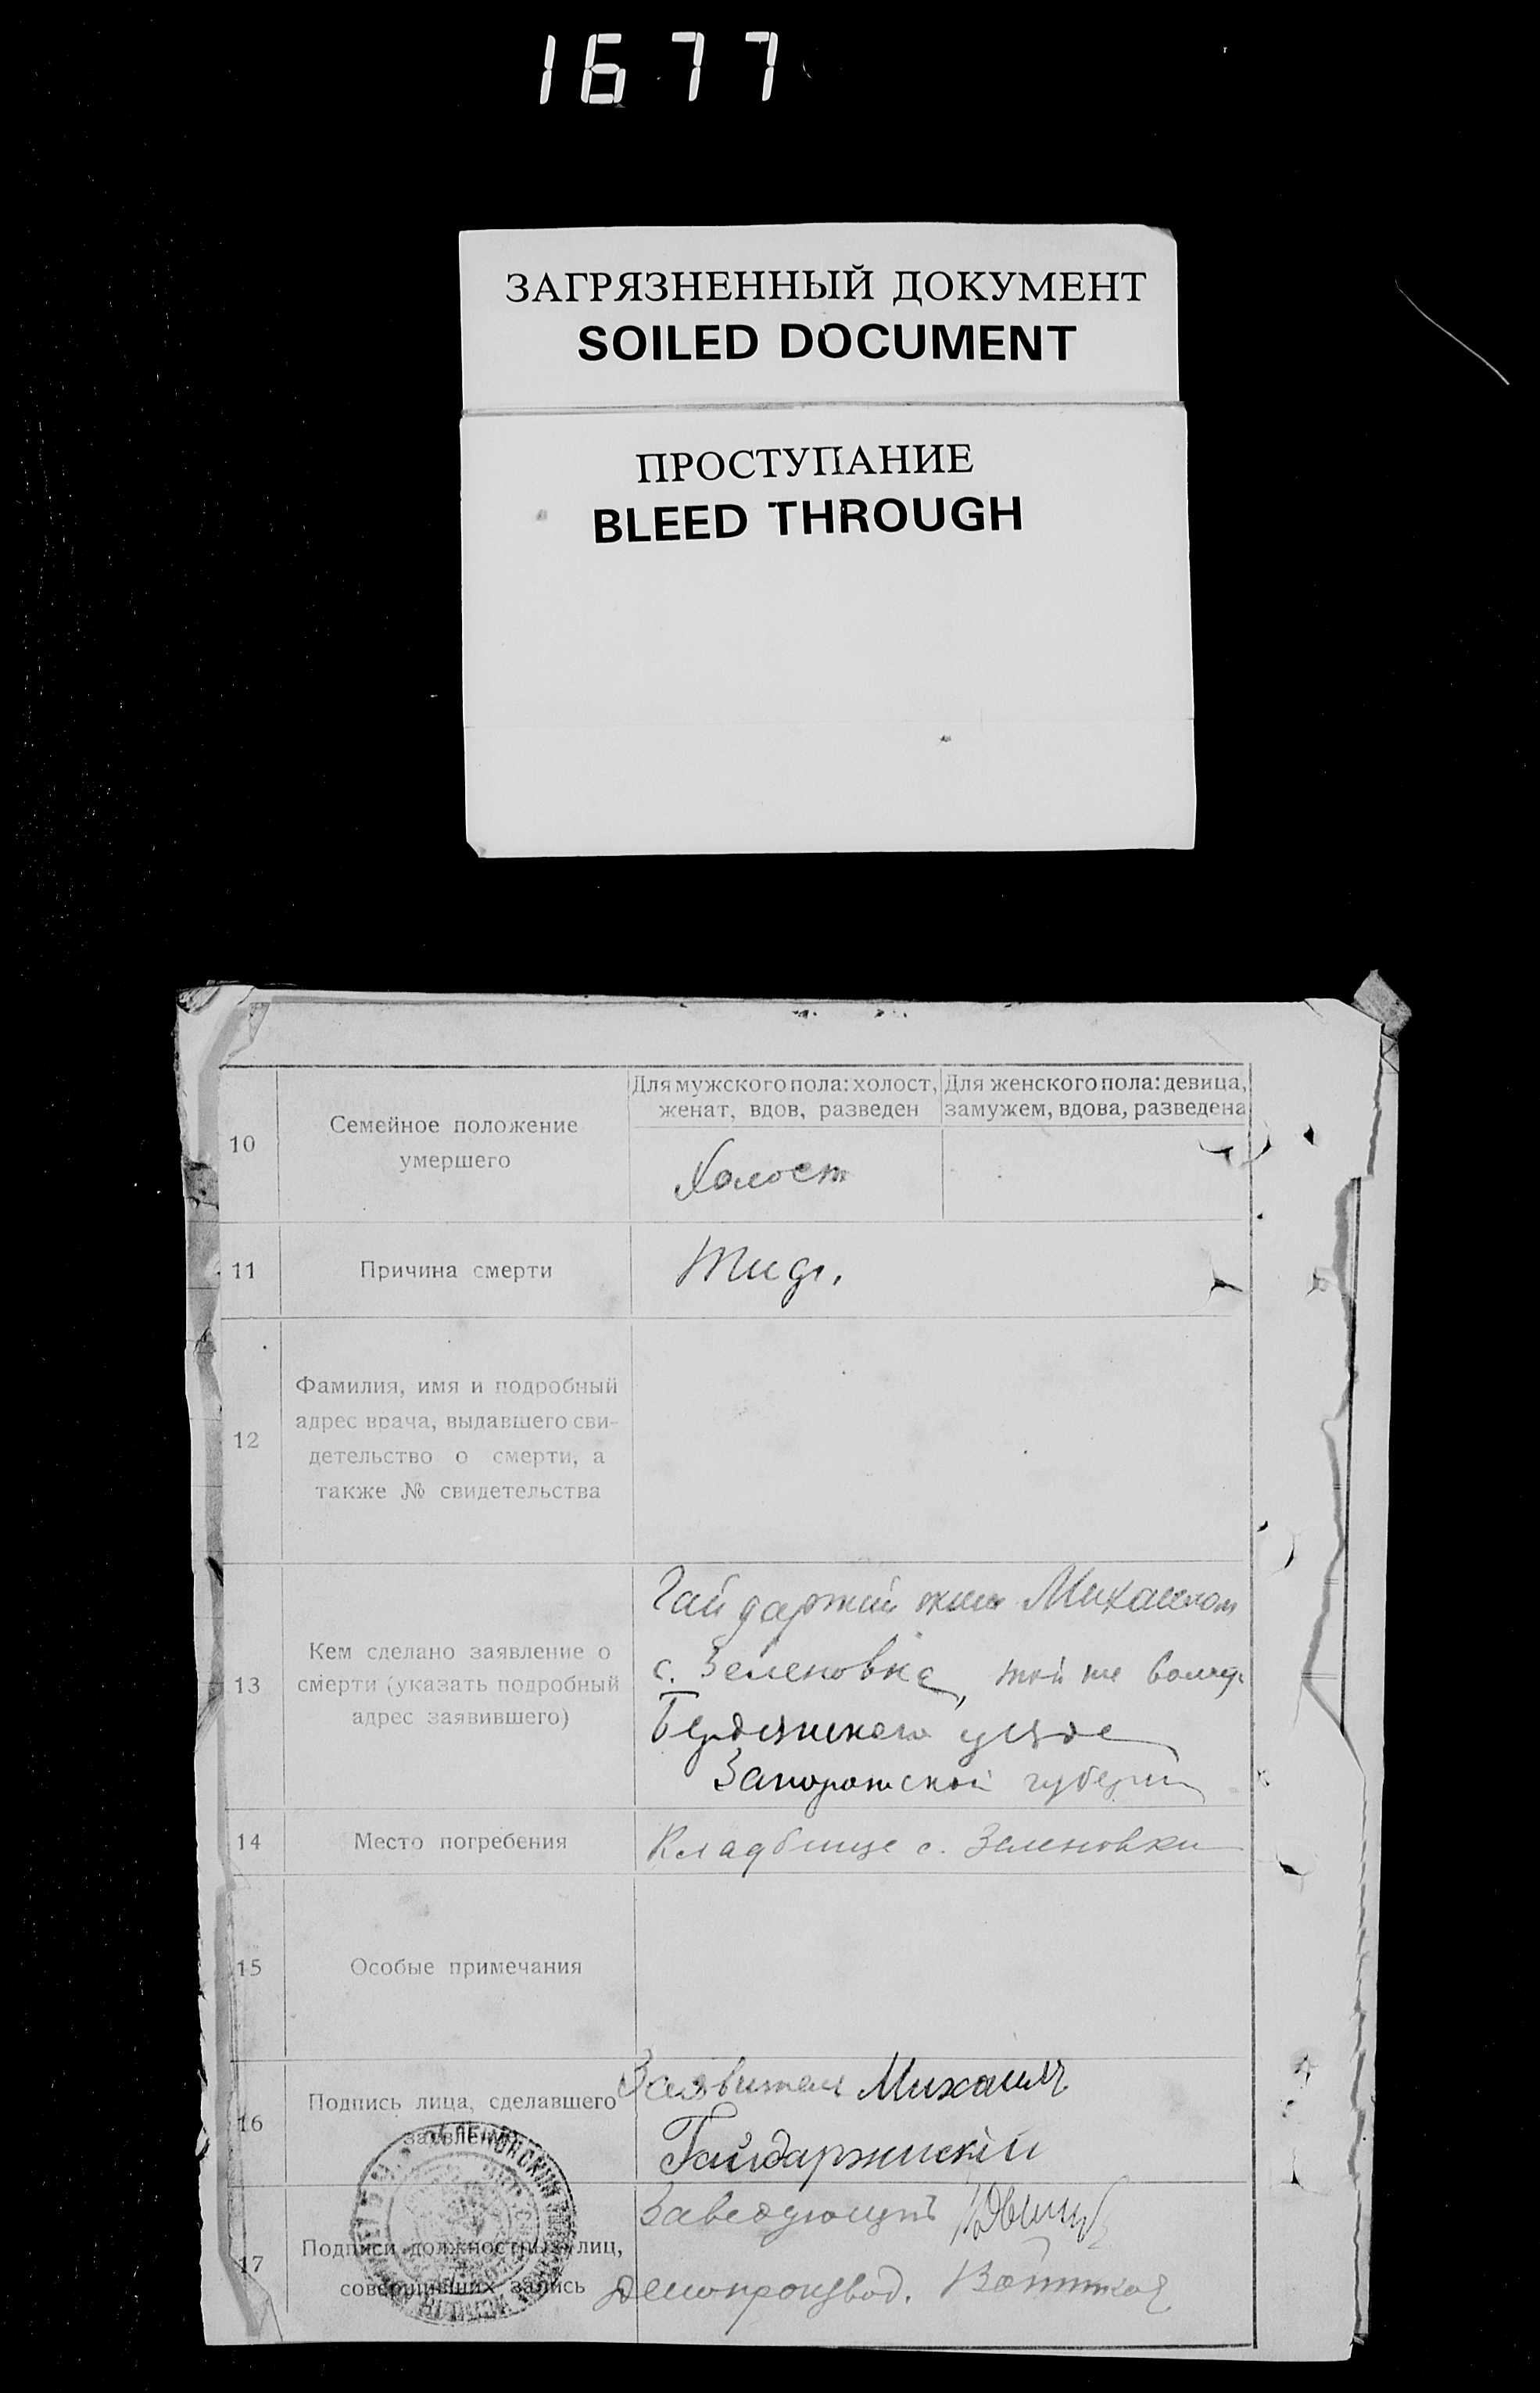 1677
ЗАГРЯЗНЕННЫЙ ДОКУМЕНТ
SOILED DOCUMENT
ПРОСТУПАНИЕ
BLEED THROUGH
10
Семейное положение
умершего
Для мужского пола: холост,
женат, вдов, разведен
Для женского пола: девица,
замужем, вдова, разведена
Холост
11
Причина смерти
Тиф.
12
Фамилия, имя и подробный
адрес врача, выдавшего сви-
детельство о смерти, а
также № свидетельства
13
Кем сделано заявление о
смерти (указать подробный
адрес заявившего)
Михаилом
с. Зеленовка, той же
Бердянского уезда
Запорожской губернии
14
Место погребения
Кладбище с. Зеленовки
15
Особые примечания
16
Подпись лица, сделавшего
заявление
Заявитель Михаилъ
Гайдаржинскій
17
Подписи должностных лиц,
совершивших запись
Заведующий
Делопроизвод.